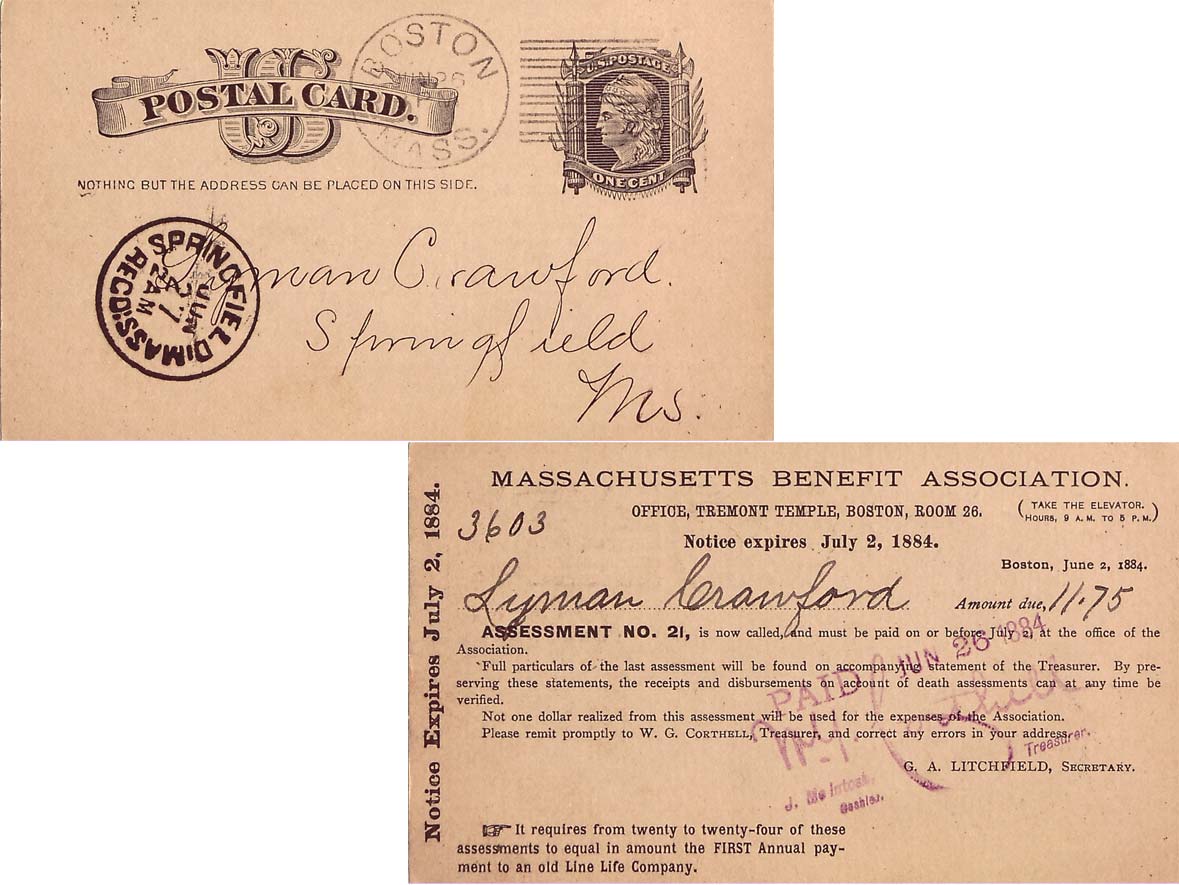 US
POSTAL CARD.
BOSTON
JUN 26
MASS.
U.S. POSTAGE
ONE CENT
NOTHING BUT THE ADDRESS CAN BE PLACED ON THIS SIDE.
SPRINGFIELD, MASS.
JUN
27
2 AM
REC'D.
Lyman Crawford.
Springfield
Ms.
Notice Expires July 2, 1884.
MASSACHUSETTS BENEFIT ASSOCIATION.
3603
OFFICE, TREMONT TEMPLE, BOSTON, ROOM 26.
(TAKE THE ELEVATOR.
HOURS, 9 A. M. TO 5 P. M.)
Notice expires July 2, 1884.
Boston, June 2, 1884.
Lyman Crawford Amount due, 11.75
ASSESSMENT NO. 21, is now called, and must be paid on or before July 2, at the office of the
Association.
Full particulars of the last assessment will be found on accompanying statement of the Treasurer. By pre-
serving these statements, the receipts and disbursements on account of death assessments can at any time be
verified.
Not one dollar realized from this assessment will be used for the expenses of the Association.
Please remit promptly to W. G. CORTHELL, Treasurer, and correct any errors in your address.
G. A. LITCHFIELD, SECRETARY.
PAID JUN 26 1884
W. G. Corthell
Treasurer.
J. Mc Intosh,
Cashier.
☞ It requires from twenty to twenty-four of these
assessments to equal in amount the FIRST Annual pay-
ment to an old Line Life Company.